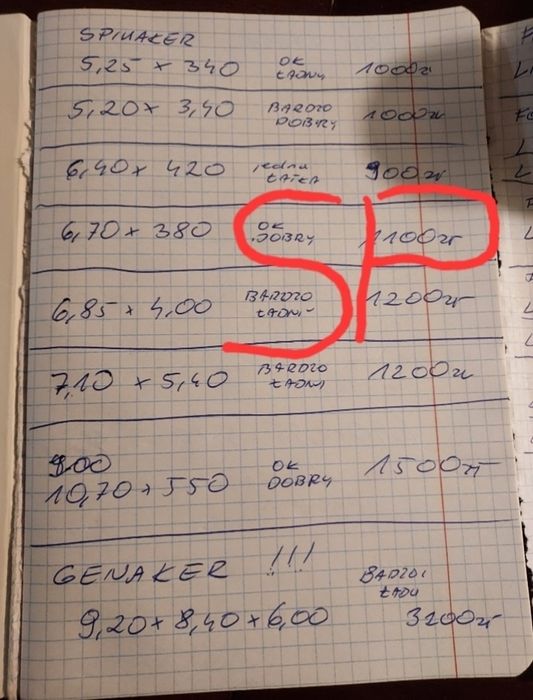 SPINAKER
5,25 x 340 OK ŁADNY 1000zł
5,20 x 3,40 BARDZO DOBRY 1000zł
6,40 x 420 jedna ŁATKA 900zł
6,70 x 380 OK DOBRY 1100zł
6,85 x 4,00 BARDZO ŁADNY 1200zł
7,10 x 5,40 BARDZO ŁADNY 1200zł
9,00
10,70 x 550 OK DOBRY 1500zł
GENAKER !!!
9,20 x 8,40 x 6,00 BARDZO ŁADNY 3200zł
SP